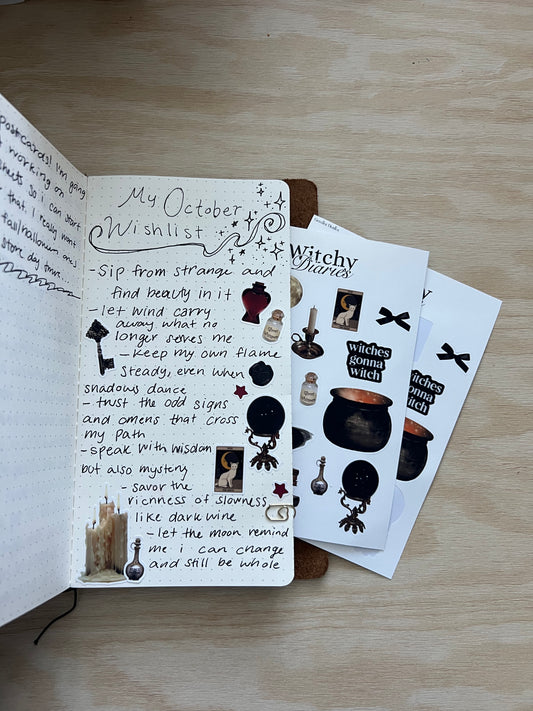 postcards! I'm going
working on
sheets so i can start
that I really want
fall/halloween ones
store day
My October
Wishlist
-Sip from strange and
find beauty in it
-let wind carry
away what no
longer serves me
-keep my own flame
steady, even when
shadows dance
-trust the odd signs
and omens that cross
my path
-speak with wisdom
but also mystery
-savor the
richness of slowness
like dark wine
-let the moon remind
me i can change
and still be whole
Witchy
Diaries
witches
gonna
witch
hy
witches
gonna
witch